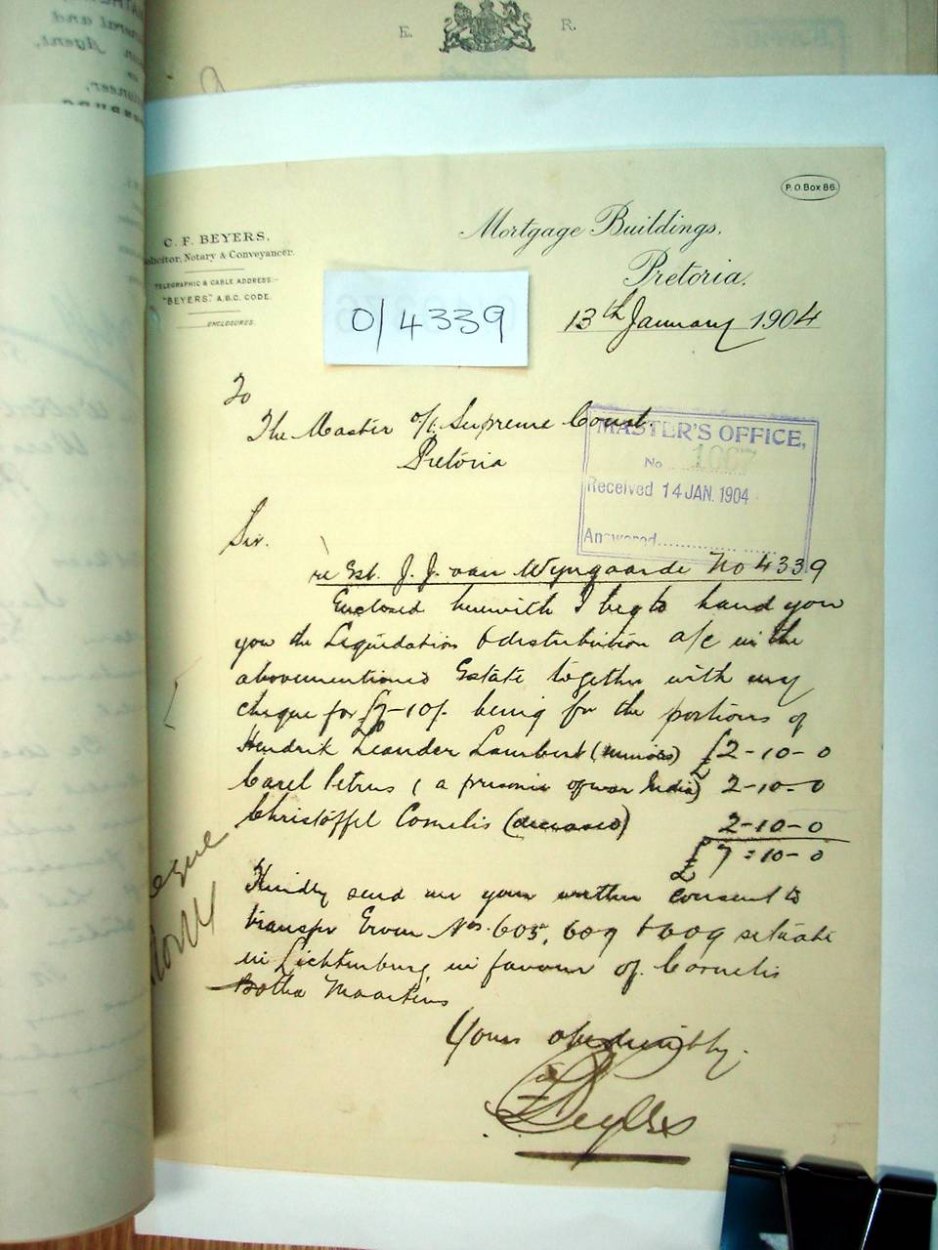 E. R.
P.O. Box 86.
C. F. BEYERS,
Solicitor, Notary & Conveyancer.
TELEGRAPHIC & CABLE ADDRESS:-
"BEYERS." A.B.C. CODE.
ENCLOSURES.
Mortgage Buildings,
Pretoria,
13th January 1904
0/4339
To
The Master o/t Supreme Court
Pretoria
MASTER'S OFFICE,
No 1067
Received 14 JAN. 1904
Answered
Sir.
re Est. J. J. van Wyngaarde No 4339
Enclosed herewith I beg to hand you
you the Liquidation & distribution a/c in the
abovementioned Estate together with my
cheque for £7-10/- being for the portions of
Hendrik Leander Lambert (minor) £2-10-0
Carel Petrus (a prisoner of war India) 2-10-0
Christoffel Cornelis (deceased) 2-10-0
£7=10-0
Kindly send me your written consent to
transfer Erven Nos. 605, 609 & 609 situate
in Lichtenburg, in favour of Cornelis
Botha Maartens
Yours obediently.
Beyers